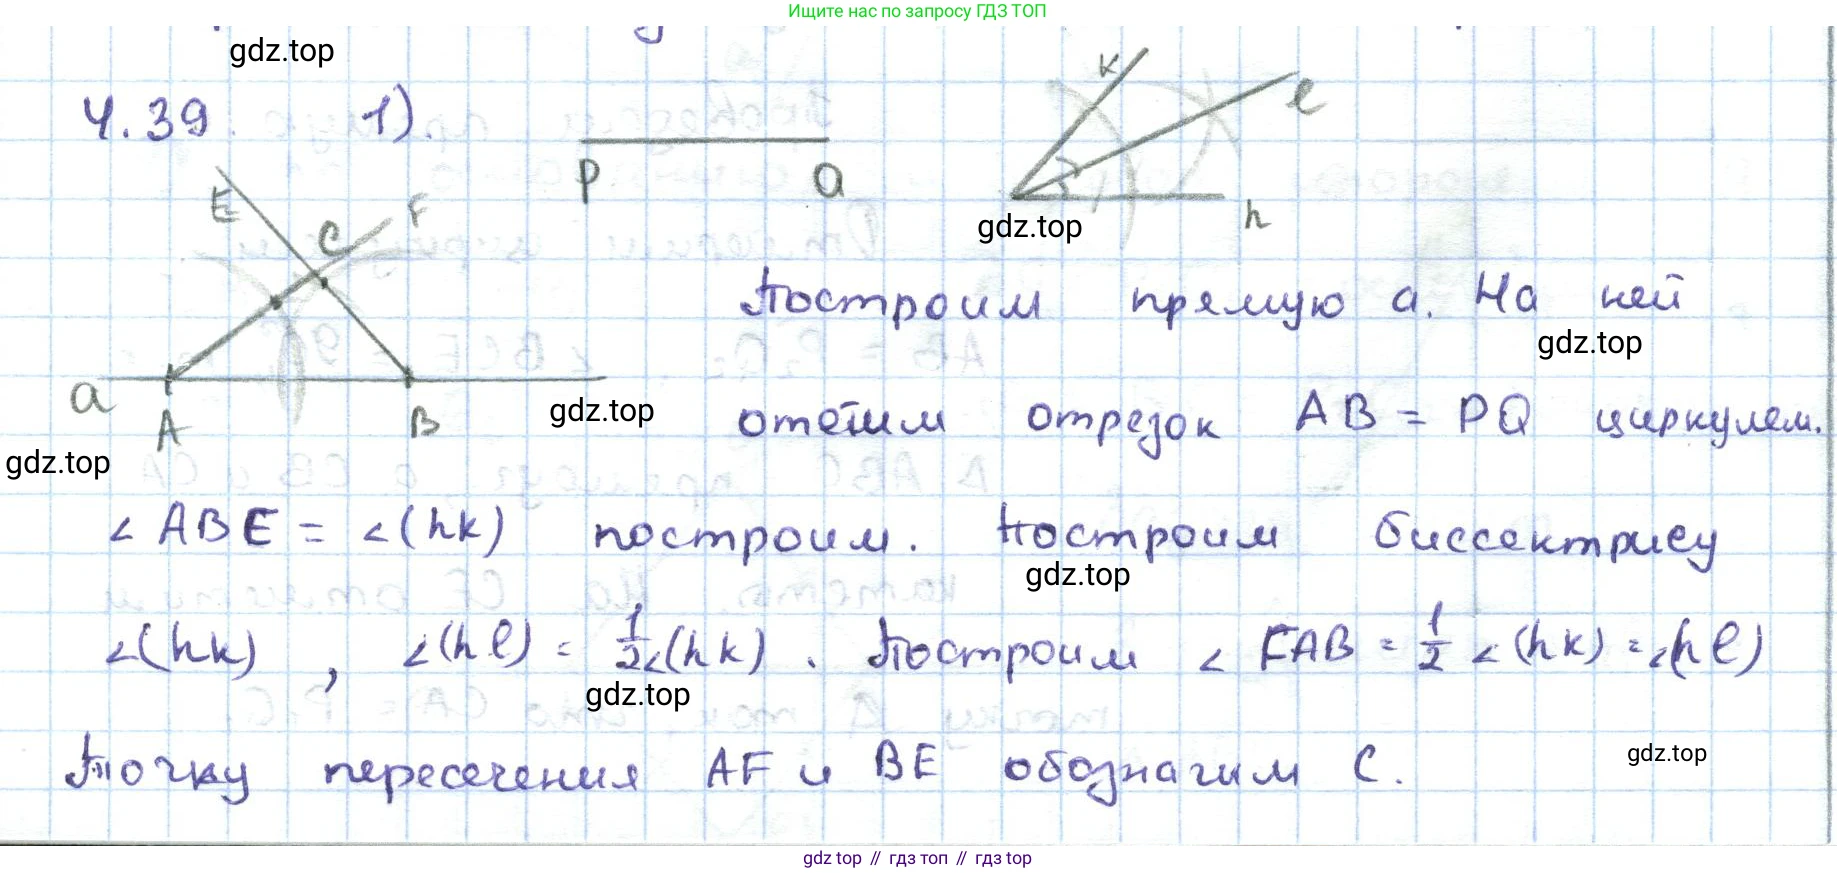 Ищите нас по запросу ГДЗ ТОП
gdz.top
4.39. 1).
P Q
к l h
gdz.top
E C F
a A B
Построим прямую a. На ней
gdz.top
отметим отрезок AB = PQ циркулем.
gdz.top
gdz.top
∠ ABE = ∠(hk) построим. Построим биссектрису
gdz.top
∠(hk) , ∠(hl) = 1/2∠(hk) . Построим ∠ FAB = 1/2 ∠(hk) = ∠(hl)
gdz.top
Точку пересечения AF и BE обозначим C.
gdz.top
gdz top // гдз топ // gdz top